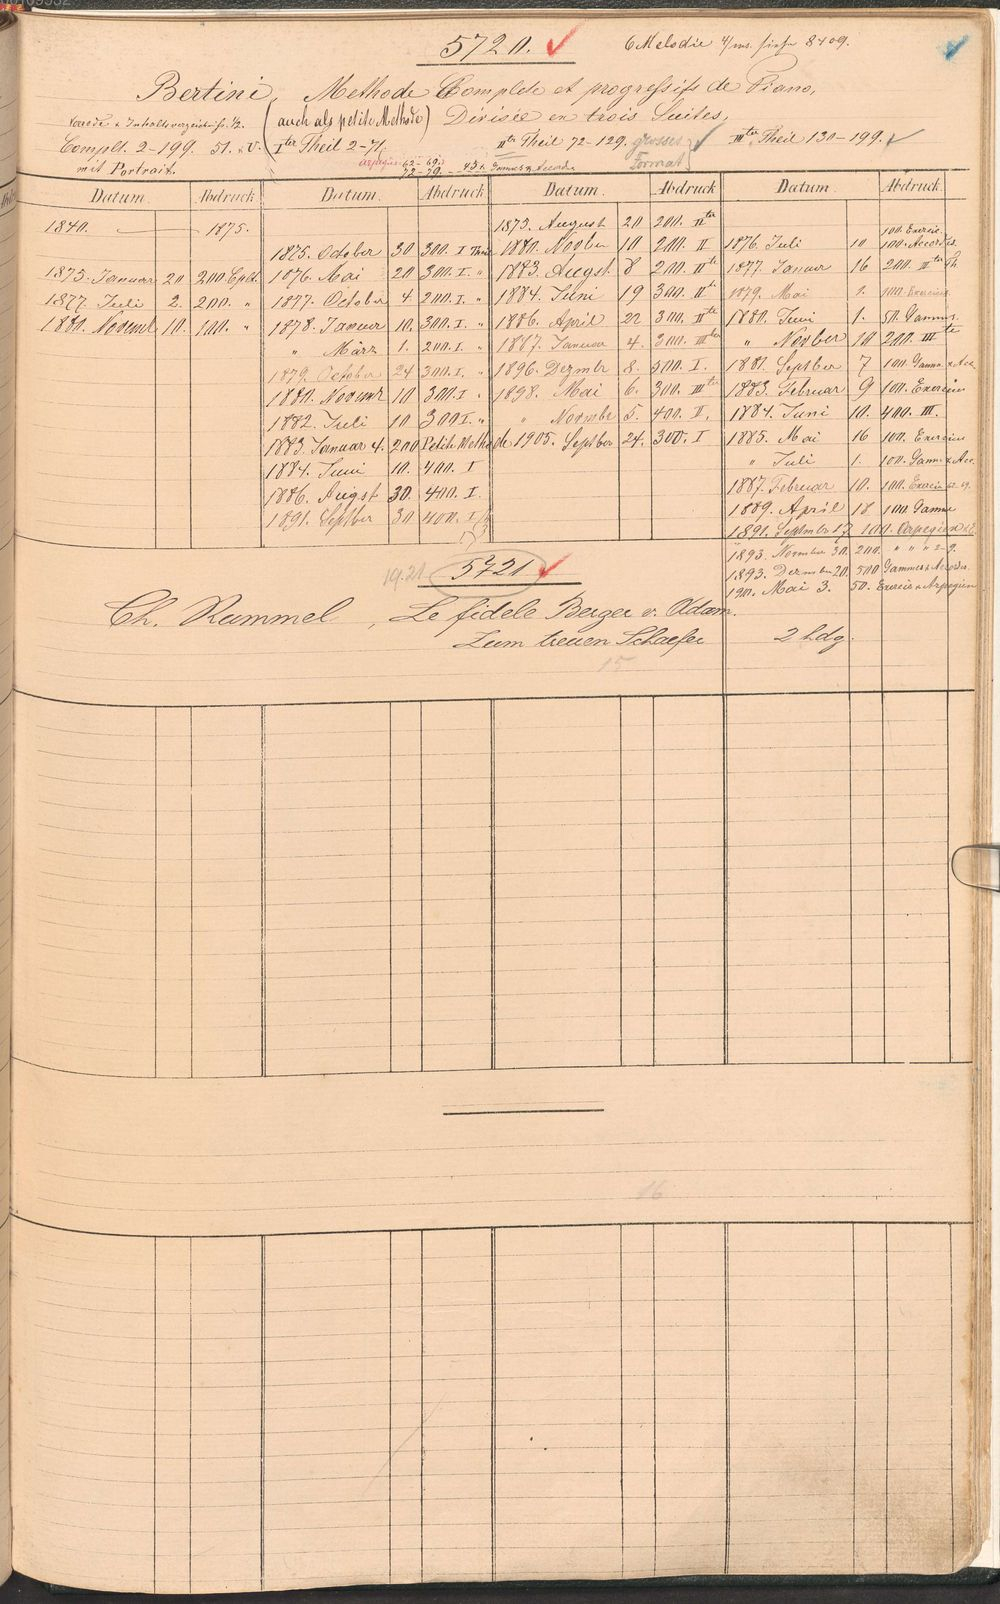 5720. ✓ 6 Melodie 4/ms. siehe 8409.
Bertini, Methode Complete et progressifs de Piano,
(auch als petite Methode) Divisée en trois Suites,
Vorrede & Inhaltsverzeichniss ½.
Complt. 2-199. 51. & V. Iter Theil 2-71. IIter Theil 72-129. grosses Format ✓ IIIter Theil 130-199. ✓
mit Portrait. arpegien 62-69. 72-79. Gammes & Accorde.
Datum. Abdruck Datum. Abdruck Datum. Abdruck Datum. Abdruck
1840. — 1875.
1875. Januar 20 200. Cplt.
1877. Juli 2. 200. "
1880. Novembr 10. 100. "
1875. October 30 300. I Theil
1876. Mai 20 300. I. "
1877. October 4 200. I. "
1878. Januar 10. 300. I. "
" März 1. 200. I. "
1879. October 24 300. I. "
1880. Novembr 10 300. I "
1882. Juli 10 300 I. "
1883. Januar 4. 200 Petite Methode
1884. Juni 10. 400. I
1886. Augst 30. 400. I.
1891. Septber 30 400. I
1873. August 20 200. IIter
1880. Novber 10 200. II
1883. Augst. 8 200. IIte
1884. Juni 19 300. IIte
1886. April 22 300. IIte
1887. Januar 4. 300. IIIter
1896. Dezmbr 8. 500 I.
1898. Mai 6. 300. IIIter
" Novmbr 5. 400. II.
1905. Septber 24. 300. I
100. Exercic.
1876. Juli 10 100. Accordes.
1877. Januar 16 200. IIIter Th
1879. Mai 1. 100. Exercices
1880. Juni 1. 50. Gammes
" Novber 10 200. IIIte
1881. Septber 7 100. Gamm. & Acc.
1883. Februar 9 100. Exercices
1884. Juni 10. 400. III.
1885. Mai 16 100. Exercices
" Juli 1. 100. Gamm. & Acc.
1887. Februar 10. 100. Exercic 62-69.
1889. April 18 100. Gamme
1891. Septmbr 17. 100. Arpegien
1893. Novmber 30. 200. " " " 2-9.
1893. Dezmber 20. 500 Gammes & Accordes
1901. Mai 3. 50. Exercis & Arpegien
19.21 5721 ✓
Ch. Rummel, Le fidele Berger v. Adam.
Zum treuen Schaefer 2 hdg.
15
16